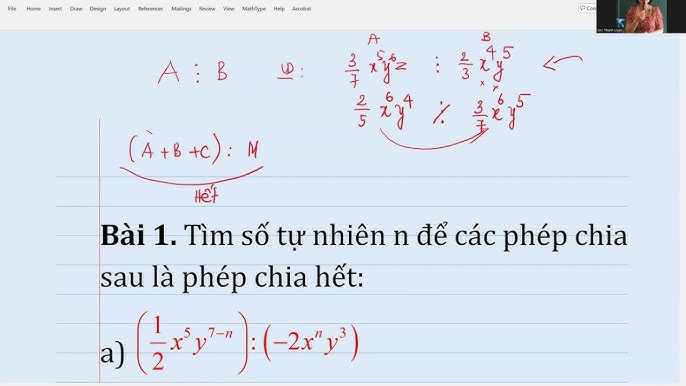 File Home Insert Draw Design Layout References Mailings Review View Help MathType Acrobat
A ⋮ B VD: A 3/7 x⁵y⁶z ⋮ B 2/3 x⁴y⁵
2/5 x⁶y⁴ ⋮̸ 3/7 x⁶y⁵
(A + B + C) : M
Hết
Bài 1. Tìm số tự nhiên n để các phép chia
sau là phép chia hết:
a) (1/2 x⁵y⁷⁻ⁿ) : (−2xⁿy³)